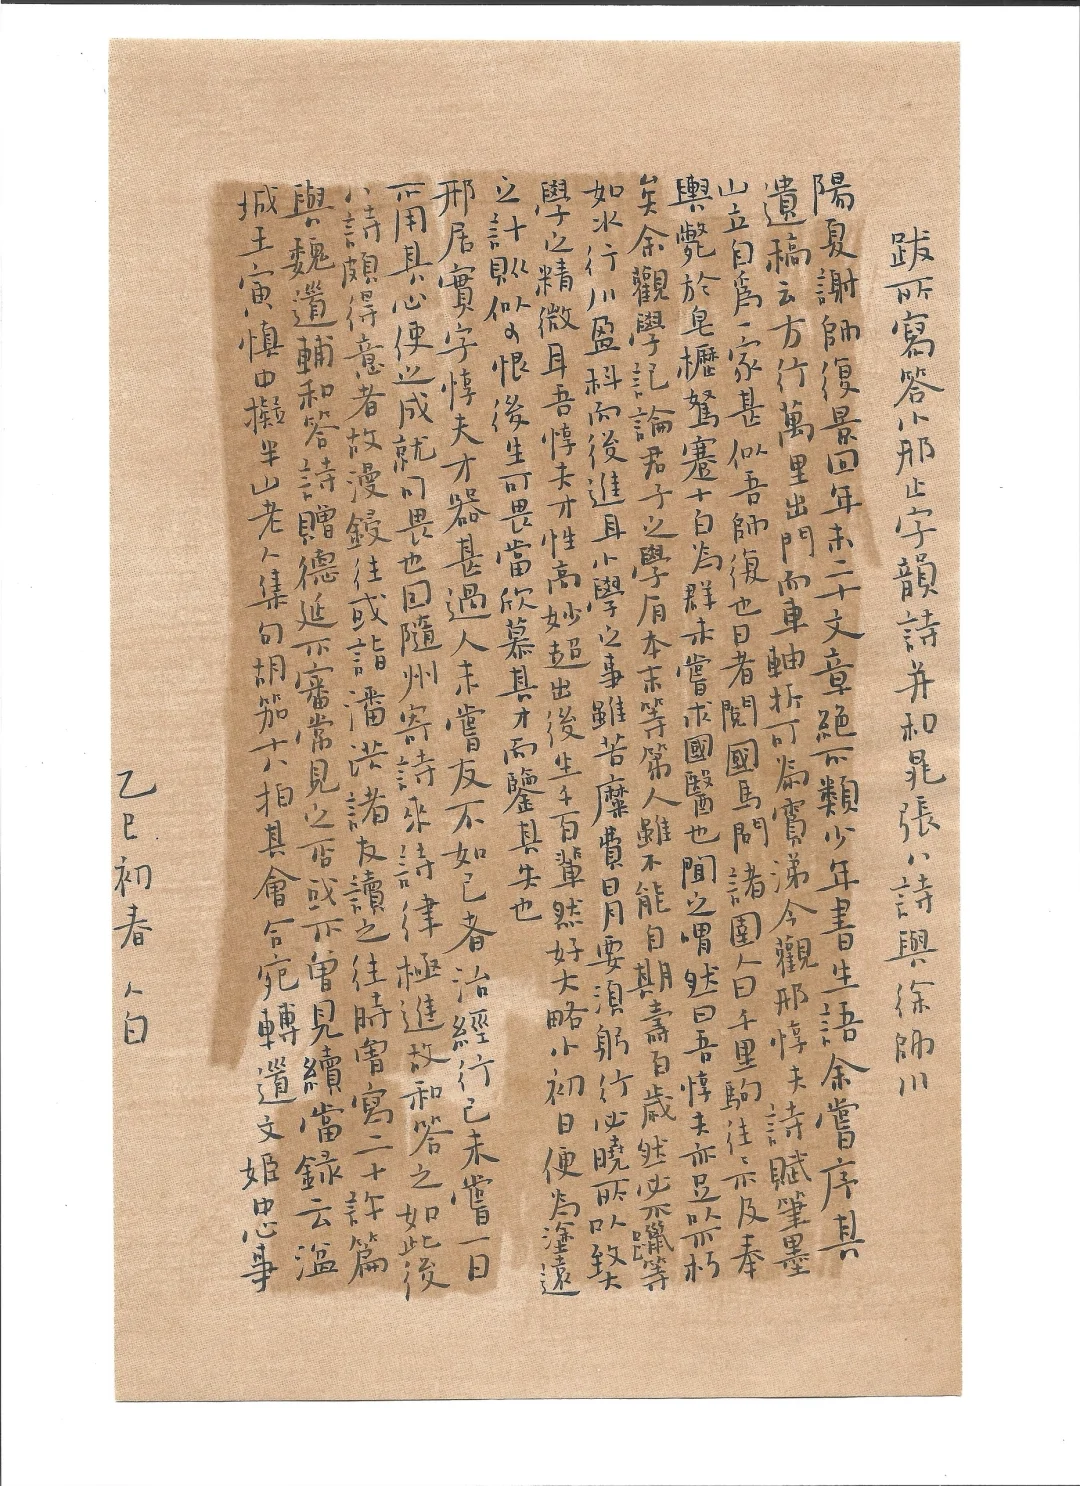 跋所寫答小邢止字韻詩并和晁張八詩與徐師川
陽夏謝師復景回年未二十文章絕不類少年書生語余嘗序其
遺稿云方行萬里出門而車軸折可為霣涕今觀邢惇夫詩賦筆墨
山立自為一家甚似吾師復也日者閱國馬問諸圉人曰千里駒往往不及奉
輿斃於皂櫪駑蹇十百為群未嘗求國醫也聞之喟然曰吾惇夫亦足以不朽
矣余觀學記論君子之學有本末等第人雖不能自期壽百歲然必不躐等
如水行川盈科而後進耳小學之事雖苦糜費日月要須躬行必曉所以致大
學之精微耳吾惇夫才性高妙超出後生千百輩然好大略小初日便為塗遠
之計則似可恨後生可畏當欣慕其才而鑒其失也
邢居實字惇夫才器甚過人未嘗友不如己者治經行己未嘗一日
不用其心使之成就可畏也因隨州寄詩來詩律極進故和答之如此後
八詩頗得意者故漫錄往或詣潘洪諸友讀之往時嘗寫二十許篇
與魏道輔和答詩贈德延不審常見之否或不曾見續當錄去溢
城王寅慎中擬半山老人集句胡笳十八拍其會合宛轉道文姬忠事
乙巳初春 人白